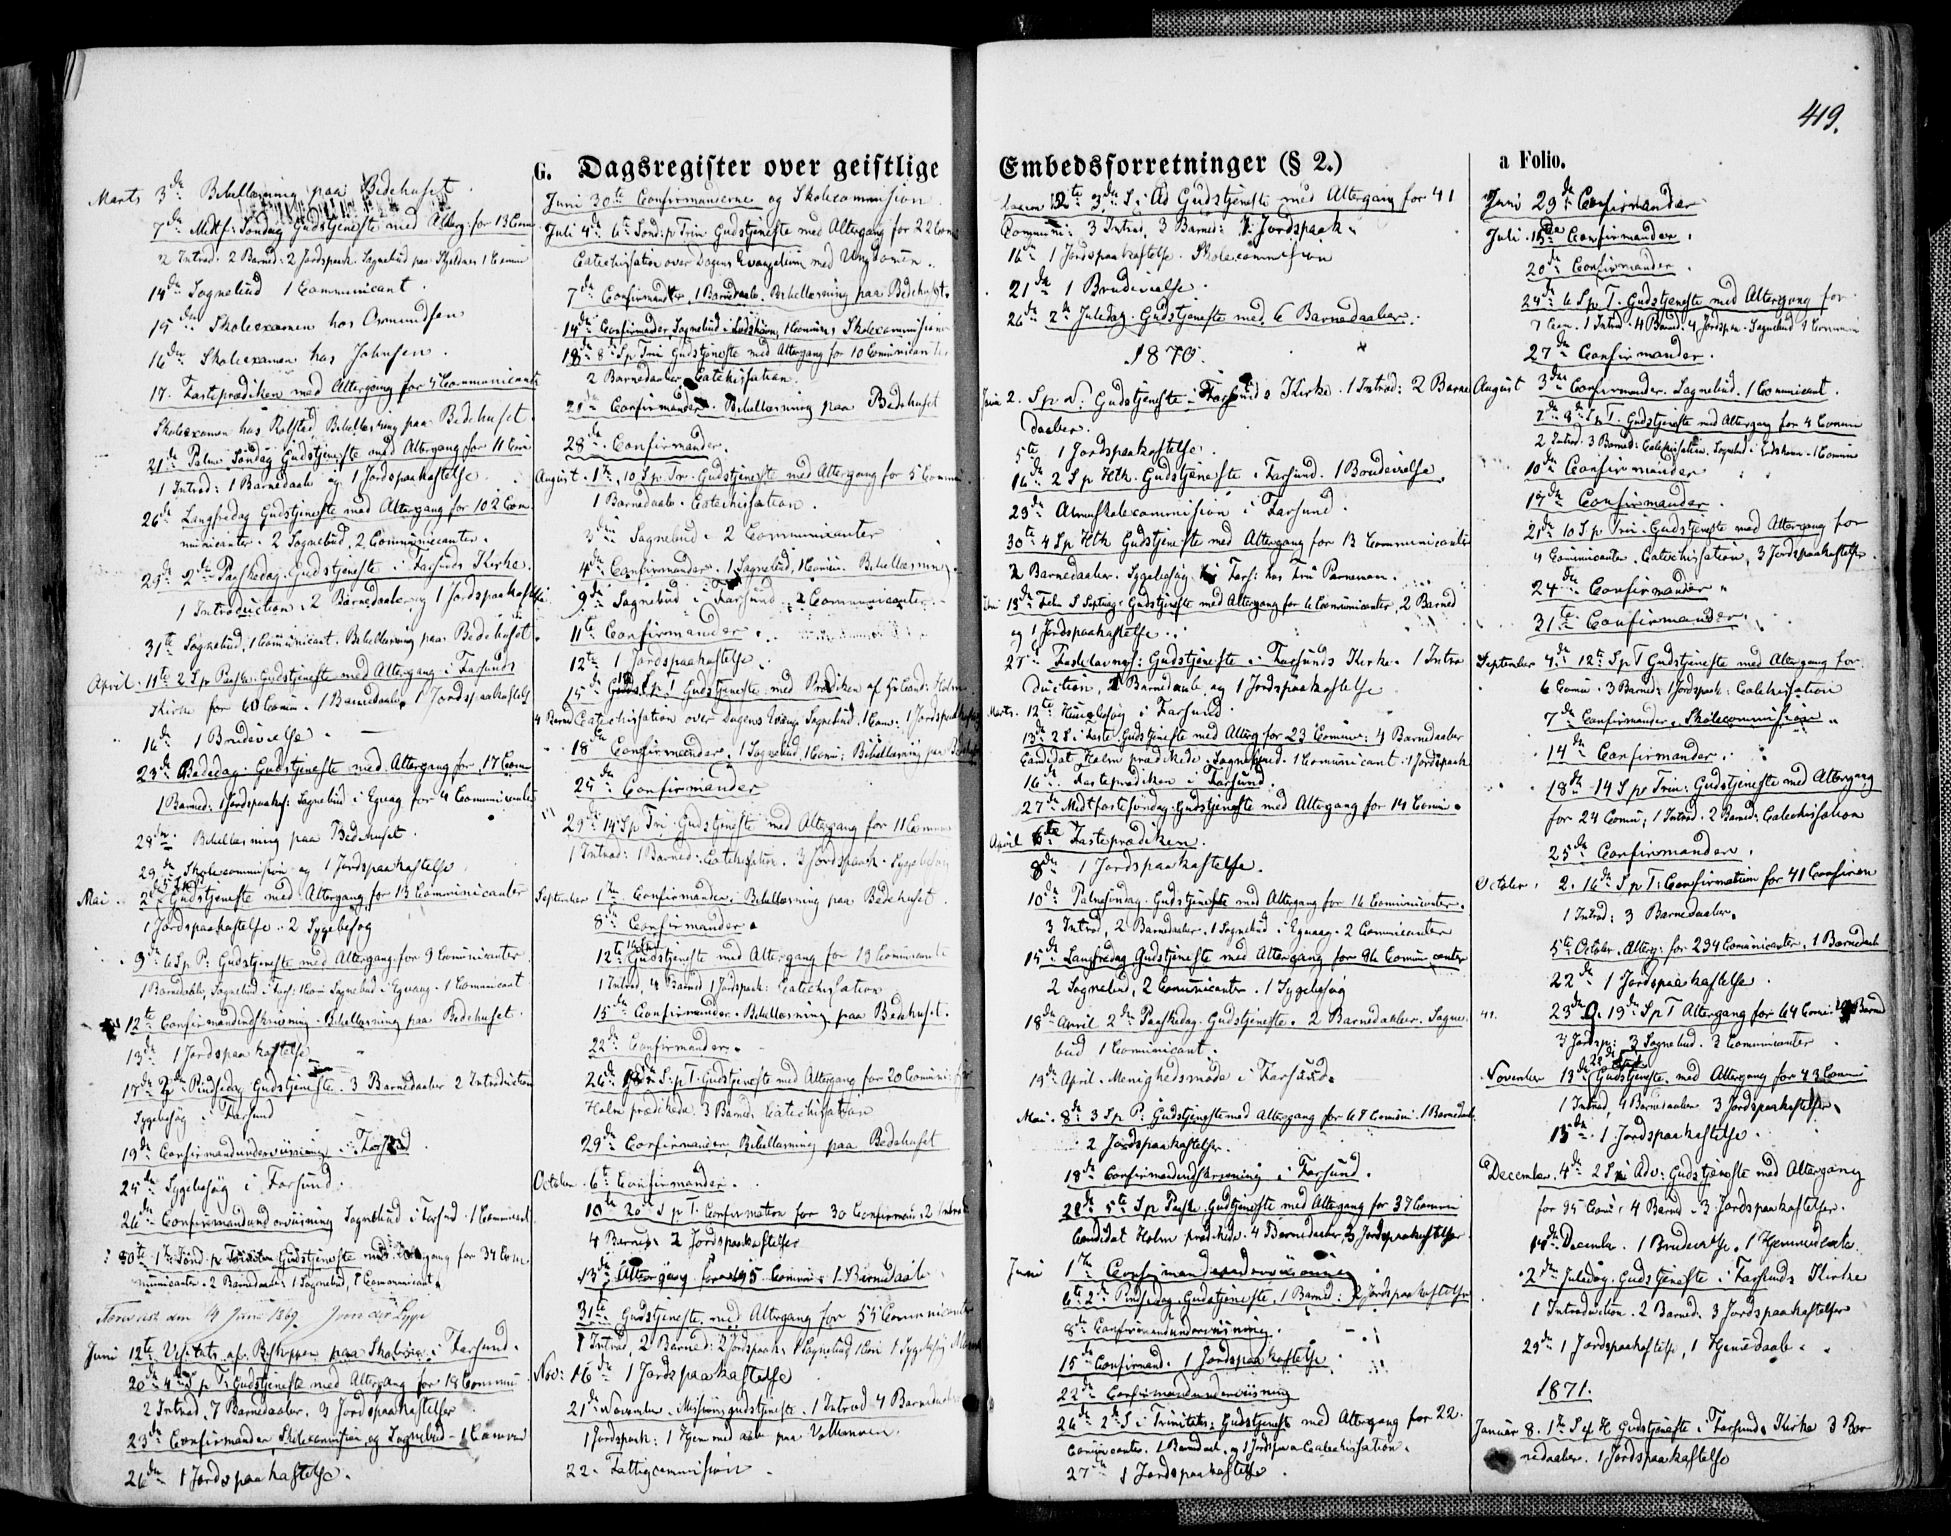 419.
G. Dagsregister over geistlige
Marts 3die Bibellæsning paa Bedehuset.
7de Midtf: Søndag Gudstjeneste med Alterg. for 13 Comm
2 Introd. 2 Barned: 2 Jordspaak. Sognebud paa 1 Comm
14de Sognebud 1 Communicant.
15de Skoleexamen hos Osmundsen
16de Skoleexamen hos Johnsen.
17. Fasteprædiken med Altergang for 4 Communicanter
Skoleexamen hos Rolfsted, Bibellæsning paa Bedehuset.
21de Palme Søndag Gudstjeneste med Altergang for 11 Com
1 Introd: 1 Barnedaab og 1 Jordspaakastelse
26de Langfredag Gudstjeneste med Altergang for 102 Com
municanter. 2 Sognebud, 2 Communicanter.
29de 2den Paaskedag. Gudstjeneste i Farsunds Kirke.
1 Introduction. 2 Barnedaab og 1 Jordspaakastelse
31te Sognebud, 1 Communicant. Bibellæsning paa Bedehuset.
April 11te 2 S p Paaske. Gudstjeneste med Altergang i Farsunds
Kirke for 60 Comm. 1 Barnedaab, 1 Jordspaakastelse
16de 1 Brudevielse.
23de Bededag. Gudstjeneste med Altergang for 17 Com
1 Barned: 1 Jordspaak: Sognebud i Eguag for 4 Communicanter
28de Bibellæsning paa Bedehuset.
29de Skolecommission og 1 Jordspaakastelse.
Mai 2den Gudstjeneste med Altergang for 13 Communicanter
1 Jordspaakastelse. 2 Sygebesøg
9de 6 Sp P: Gudstjeneste med Altergang for 9 Communicanter
1 Barnedaab, Sognebud i Fars: 1 Com Sognebud i Eguaag. 1 Communicant
12te Confirmandindskrivning. Bibellæsning paa Bedehuset.
13de 1 Jordspaakastelse
17de 2den Pindsedag. Gudstjeneste. 3 Barnedaaber 2 Introduction
Sygebesøg i Farsund
19de Confirmandunderviisning i Farsund.
25de Sygebesøg i Farsund.
26de Confirmandunderviisning Sognebud i Farsund. 1 Communicant
30te 1ste Sønd. p Trinitatis Gudstjeneste med Altergang for 34 Com
municanter. 2 Barnedaab: 1 Sognebud, 1 Communicant.
den 14 Juni 1869
Juni 12te Visitats af Bishoppen paa Skolerne i Farsund.
20de 4de S p T. Gudstjeneste med Altergang for 18 Commu
2 Introd, 7 Barnedaaber. 3 Jordspaakastelser
23de Confirmander, Skolecommission og Sognebud - 1 Commu
26de 1 Jordspaakastelse.
Juni 30te Confirmanderne og Skolecommission.
Juli 4de 6te Sønd: p Trin Gudstjeneste med Altergang for 22 Com
Catechisation over Dagens Evangelium med Ungdomen.
7de Confirmander, 1 Barnedaab. Bibellæsning paa Bedehuset.
14de Confirmander, Sognebud i Lodshavn, 1 Commun Skolecommission
18de 8de Sp Trin Gudstjeneste med Altergang for 10 Communicanter
2 Barnedaaber, Catechisation.
21de Confirmander. Bibellæsning paa Bedehuset
28de Confirmander.
August 1ste 10 S p Tr. Gudstjeneste med Altergang for 5 Commun.
1 Barnedaab. Catechisation.
3die Sognebud. 2 Communicanter
4de Confirmander. 1 Sognebud, 1 Comm. Bibellæsning.
9de Sognebud i Farsund. 2 Communicanter.
11te Confirmander.
12te 1 Jordspaakastelse.
15de Gudstjeneste med Prædiken af Cand: Holm
4 Barned Catechisation over Dagens Sognebud. 1 Com. 1 Jordspaakastelse
18de Confirmander. 1 Sognebud, 1 Comm: Bibellæsning paa Bedehuset
25de Confirmander
29de 14 S p Tri Gudstjeneste med Altergang for 11 Commun
1 Introd: 1 Barned: Catechisation. 3 Jordspaak. Sygebesøg
September 1ste Confirmander. Bibellæsning paa Bedehuset.
8de Confirmander.
12te Gudstjeneste med Altergang for 13 Communicanter
1 Introd, 4 Barned 1 Jordspaak: Catechisation
15de Confirmander. Bibellæsning paa Bedehuset.
22de Confirmander.
26de S: p T. Gudstjeneste med Altergang for 20 Commun:
Holm prædikede. 3 Barned: Catechisation
29de Confirmander, Bibellæsning paa Bedehuset
October 6te Confirmander.
10de 20de S p T. Confirmation for 30 Confirman: 2 Introd
4 Barned. 2 Jordspaakastelser
13de Altergang for 195 Commun. 1 Barnedaab.
31te Gudstjeneste med Altergang for 55 Communicanter
1 Introd, 2 Barned: 2 Jordspaak. 1 Sognebud 1 Com 1 Sygebesøg
Nov: 16de 1 Jordspaakastelse
21de November. Missionsgudstjeneste. 1 Introd 4 Barnedaaber
1 Jordspaak: 1 Hjemmedaab paa
22. Fattigcommission.
Embedsforretninger (§ 2.)
12te 3die S. i Ad Gudstjeneste med Altergang for 41
Commun: 3 Introd, 3 Barned: 1 Jordspaak.
16de 1 Jordspaakastelse. Skolecommission
21de 1 Brudevielse.
26de 2de Juledag. Gudstjeneste med 6 Barnedaaber.
1870.
2. S p N: Gudstjeneste i Farsunds Kirke. 1 Introd: 2 Barne
daaber.
5te 1 Jordspaakastelse.
16de 2 S p Hth. Gudstjeneste i Farsund. 1 Brudevielse.
29de Almueskolecommission i Farsund.
30te 4 Sp Hth Gudstjeneste med Altergang for 13 Communicanter
2 Barnedaaber. Sygebesøg i Fars: hos Fru
13de Feb. S Septuag: Gudstjeneste med Altergang for 6 Communicanter, 2 Barned
og 1 Jordspaakastelse.
27de Fastelavns: Gudstjeneste i Farsunds Kirke. 1 Intro
duction, 1 Barnedaab og 1 Jordspaakastelse
Marts. 12te i Farsund.
13de 2 S. i Faste. Gudstjeneste med Alterg for 23 Commun: 4 Barnedaaber
Candidat Holm prædikede. Sognebud. 1 Communicant. 1 Jordspaak
16de Fasteprædiken i Farsund
27de Midtfastsøndag. Gudstjeneste med Altergang for 14 Comm.
April 6te Fasteprædiken.
8de 1 Jordspaakastelse.
10de Palmesøndag. Gudstjeneste med Altergang for 16 Communicanter.
3 Introd, 2 Barnedaaber, 1 Sognebud i Eguaag. 2 Communicanter
15de Langfredag Gudstjeneste med Altergang for 96 Communicanter
2 Sognebud, 2 Communicanter. 1 Sygebesøg
18de April 2den Paaskedag. Gudstjeneste. 2 Barnedaaber. Sogne
bud 1 Communicant.
19de April. Menighedsmøde i Farsund.
Mai. 8de 3 S p P. Gudstjeneste med Altergang for 68 Commun. 1 Barnedaab
2 Jordspaakastelser.
18de Confirmandindskrivning i Farsund.
22de 5te S p Paaske. Gudstjeneste med Altergang for 37 Commun
Candidat Holm prædikede. 4 Barnedaaber, 3 Jordspaakastelser
Juni 1ste Confirmandunderviisning
6te 2de Pindsedag. Gudstjeneste, 1 Barned: 2 Jordspaakastelser
8de Confirmandunderviisning.
15de Confirmand. 1 Jordspaakastelse
22de Confirmandunderviisning
26de 2de S i Trinitatis: Gudstjenest med Altergang for 22.
Communicanter. 1 Barnedaab, og 1 Jordspaa Catechisation.
27de 1 Jordspaakastelse.
a Folio.
Juni 29de Confirmander
Juli 13de Confirmander.
20de Confirmander.
24de 6 S p T. Gudstjeneste med Altergang for
7 Com. 1 Introd. 4 Barned. 4 Jordspaa. Sognebud 1 Commun
27de Confirmander.
August 3die Confirmander. Sognebud. 1 Communicant.
7de 8de S p T. Gudstjeneste med Altergang for 4 Commun
2 Introd. 3 Barned: Catechisation, Sognebud i Lodshavn. 1 Commun
10de Confirmander
17de Confirmander.
21de 10 S p Trin. Gudstjeneste med Altergang for
4 Communicanter. Catechisation, 3 Jordspaakastelse.
24de Confirmander
31te Confirmander.
September 4de 12te S p T Gudstjeneste med Altergang for
6 Comm. 3 Barned: 1 Jordspaak: Catechisation
7de Confirmander. Skolecommission
14de Confirmander.
18de 14 S p Trin: Gudstjeneste med Altergang
for 24 Comm; 1 Introd. 2 Barned: Catechisation
25de Confirmander.
October. 2. 16de S p T: Confirmation for 41 Confirman
1 Introd: 3 Barnedaaber.
5te October. Alterg: for 234 Communicanter, 1 Barnedaab
22de 1 Jordspaakastelse.
23de 19de S p T Altergang for 64 Comm: Barned
3 Jordsp: 3 Sognebud. 3 Communicanter
November 13de Gudstjeneste med Altergang for 43 Comm
1 Introd, 4 Barnedaaber 3 Jordspaakastelser.
15de 1 Jordspaakastelse.
December. 4de 2 S i Adv: Gudstjeneste med Altergang
for 95 Com: 4 Barned. 3 Jordspaakastelser.
14de December. 1 Brudevielse. 1 Hjemmedaab.
2den Juledag. Gudstjeneste i Farsunds Kirke
1 Introduction. 2 Barned. 3 Jordspaakastelser
29de 1 Jordspaakastelse, 1 Hjemmedaab.
1871.
Januar 8. 1ste S ef H Gudstjeneste i Farsunds Kirke 3 Bar
nedaaber. 1 Jordspaakastelse